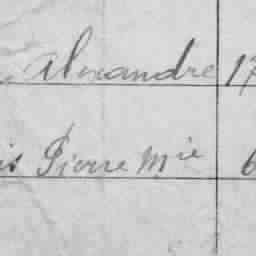 Alexandre 17
is Pierre Mie 6